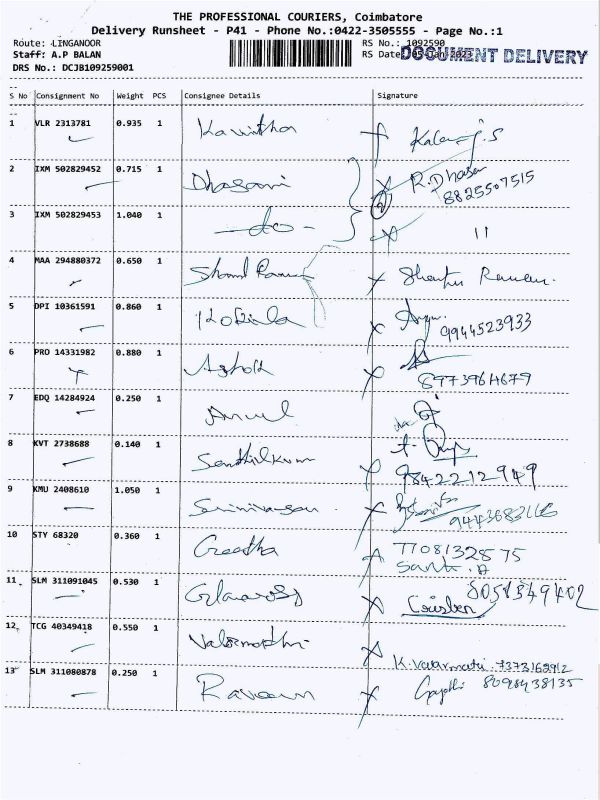 THE PROFESSIONAL COURIERS, Coimbatore
Delivery Runsheet - P41 - Phone No.:0422-3505555 - Page No.:1
Route: LINGANOOR RS No.: 1092590
Staff: A.P BALAN RS Date: DOCUMENT DELIVERY
DRS No.: DCJB109259001
S No Consignment No Weight PCS Consignee Details Signature
1 VLR 2313781 0.935 1 Kavitha
2 IXM 502829452 0.715 1 Dhasani R.Dhasa
8825507515
3 IXM 502829453 1.040 1 -do- 11
4 MAA 294880372 0.650 1
5 DPI 10361591 0.860 1 Kokila
9944523933
6 PRO 14331982 0.880 1 Ashok
8973964679
7 EDQ 14284924 0.250 1
8 KVT 2738688 0.140 1 Senthilkumar
9842212949
9 KMU 2408610 1.050 1 Srinivasan
10 STY 68320 0.360 1 Geetha 7708132875
11 SLM 311091045 0.530 1
12 TCG 40349418 0.550 1 Valarmathi
K. Valarmathi. 7373169912
13 SLM 311080878 0.250 1 Raveen 8098438135